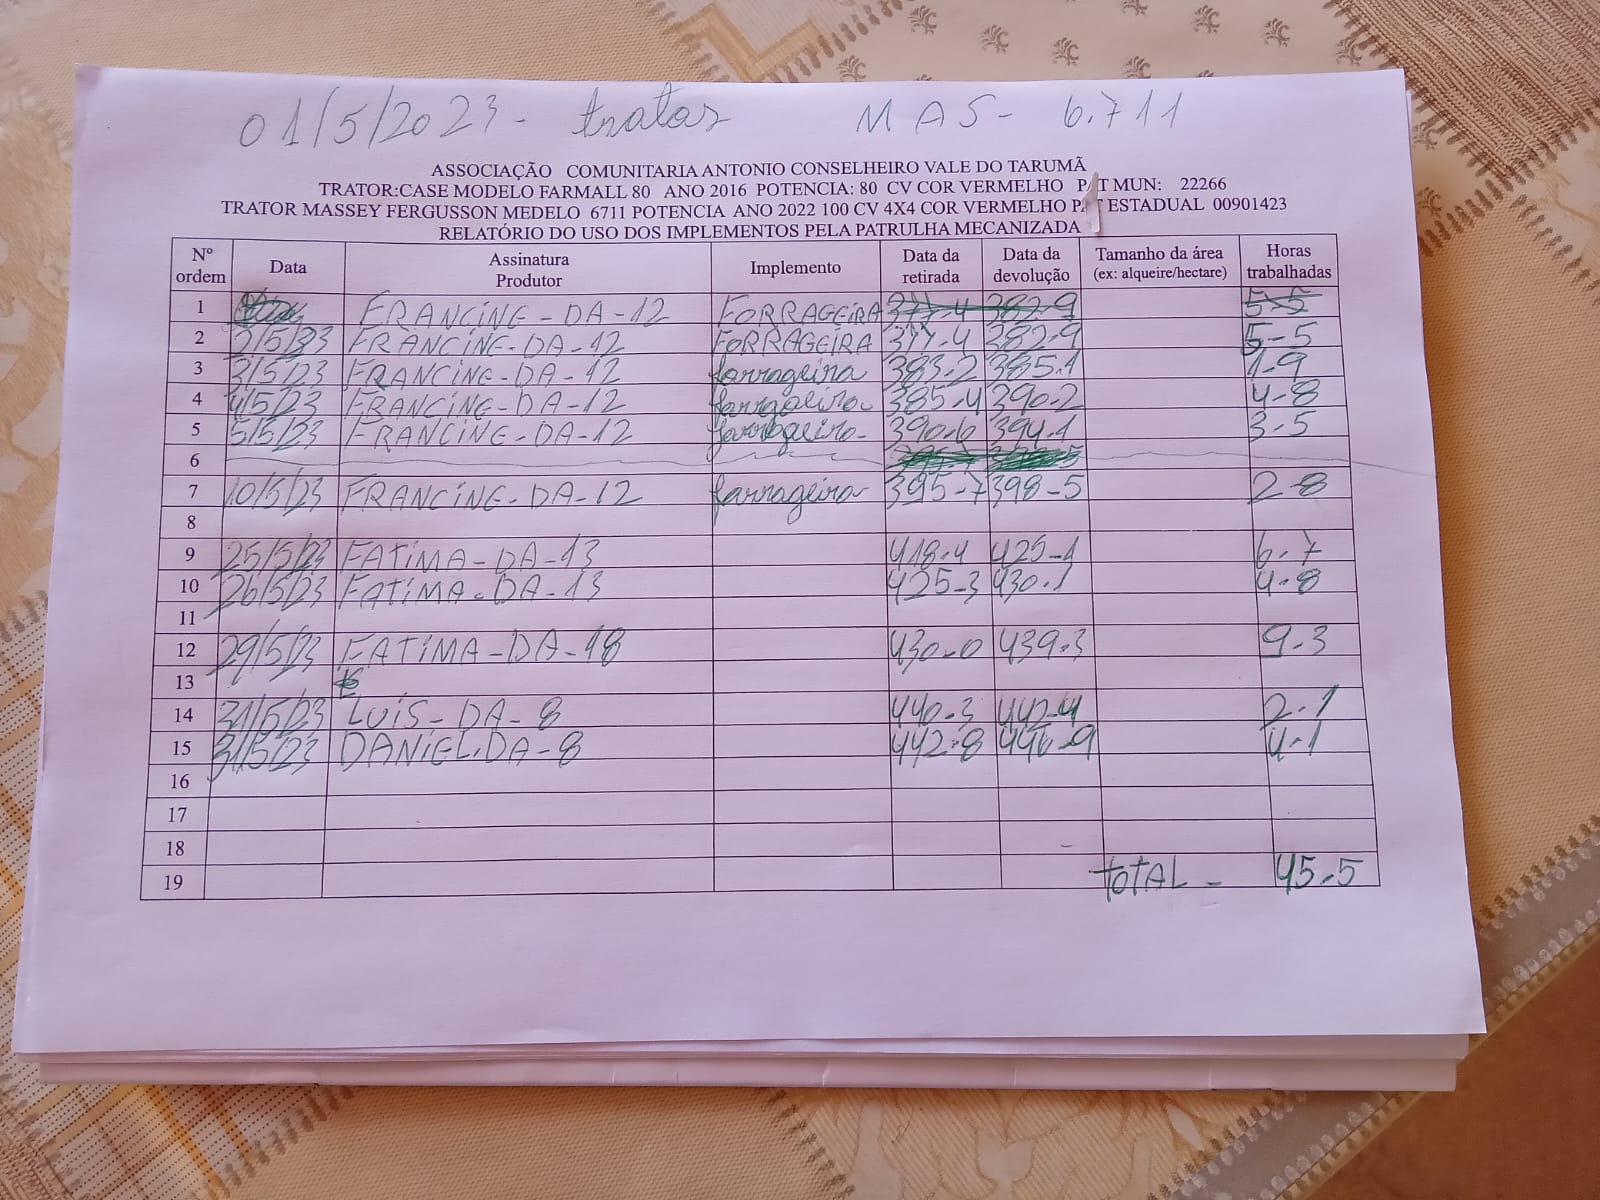 01/5/2023- trator MAS- 6.711
ASSOCIAÇÃO COMUNITARIA ANTONIO CONSELHEIRO VALE DO TARUMÃ
TRATOR:CASE MODELO FARMALL 80 ANO 2016 POTENCIA: 80 CV COR VERMELHO PAT MUN: 22266
TRATOR MASSEY FERGUSSON MEDELO 6711 POTENCIA ANO 2022 100 CV 4X4 COR VERMELHO PAT ESTADUAL 00901423
RELATÓRIO DO USO DOS IMPLEMENTOS PELA PATRULHA MECANIZADA
Nº ordem Data Assinatura Produtor Implemento Data da retirada Data da devolução Tamanho da área (ex: alqueire/hectare) Horas trabalhadas
1 FRANCINE-DA-12 FORRAGEIRA 377-4 382-9 5-5
2 2/5/23 FRANCINE-DA-12 FORRAGEIRA 377-4 382-9 5-5
3 3/5/23 FRANCINE-DA-12 forrageira 383-2 385-1 1-9
4 4/5/23 FRANCINE-DA-12 forrageira- 385-4 390-2 4-8
5 5/5/23 FRANCINE-DA-12 forrageira- 390-6 394-1 3-5
6
7 10/5/23 FRANCINE-DA-12 forrageira 395-7 398-5 2-8
8
9 25/5/23 FATIMA-DA-13 418-4 425-1 6-7
10 26/5/23 FATIMA-DA-13 425-3 430-1 4-8
11
12 29/5/23 FATIMA-DA-18 430-0 439-3 9-3
13
14 31/5/23 LUIS-DA-8 440-3 442-4 2-1
15 31/5/23 DANIEL.DA-8 442-8 446-9 4-1
16
17
18
19 TOTAL- 45-5